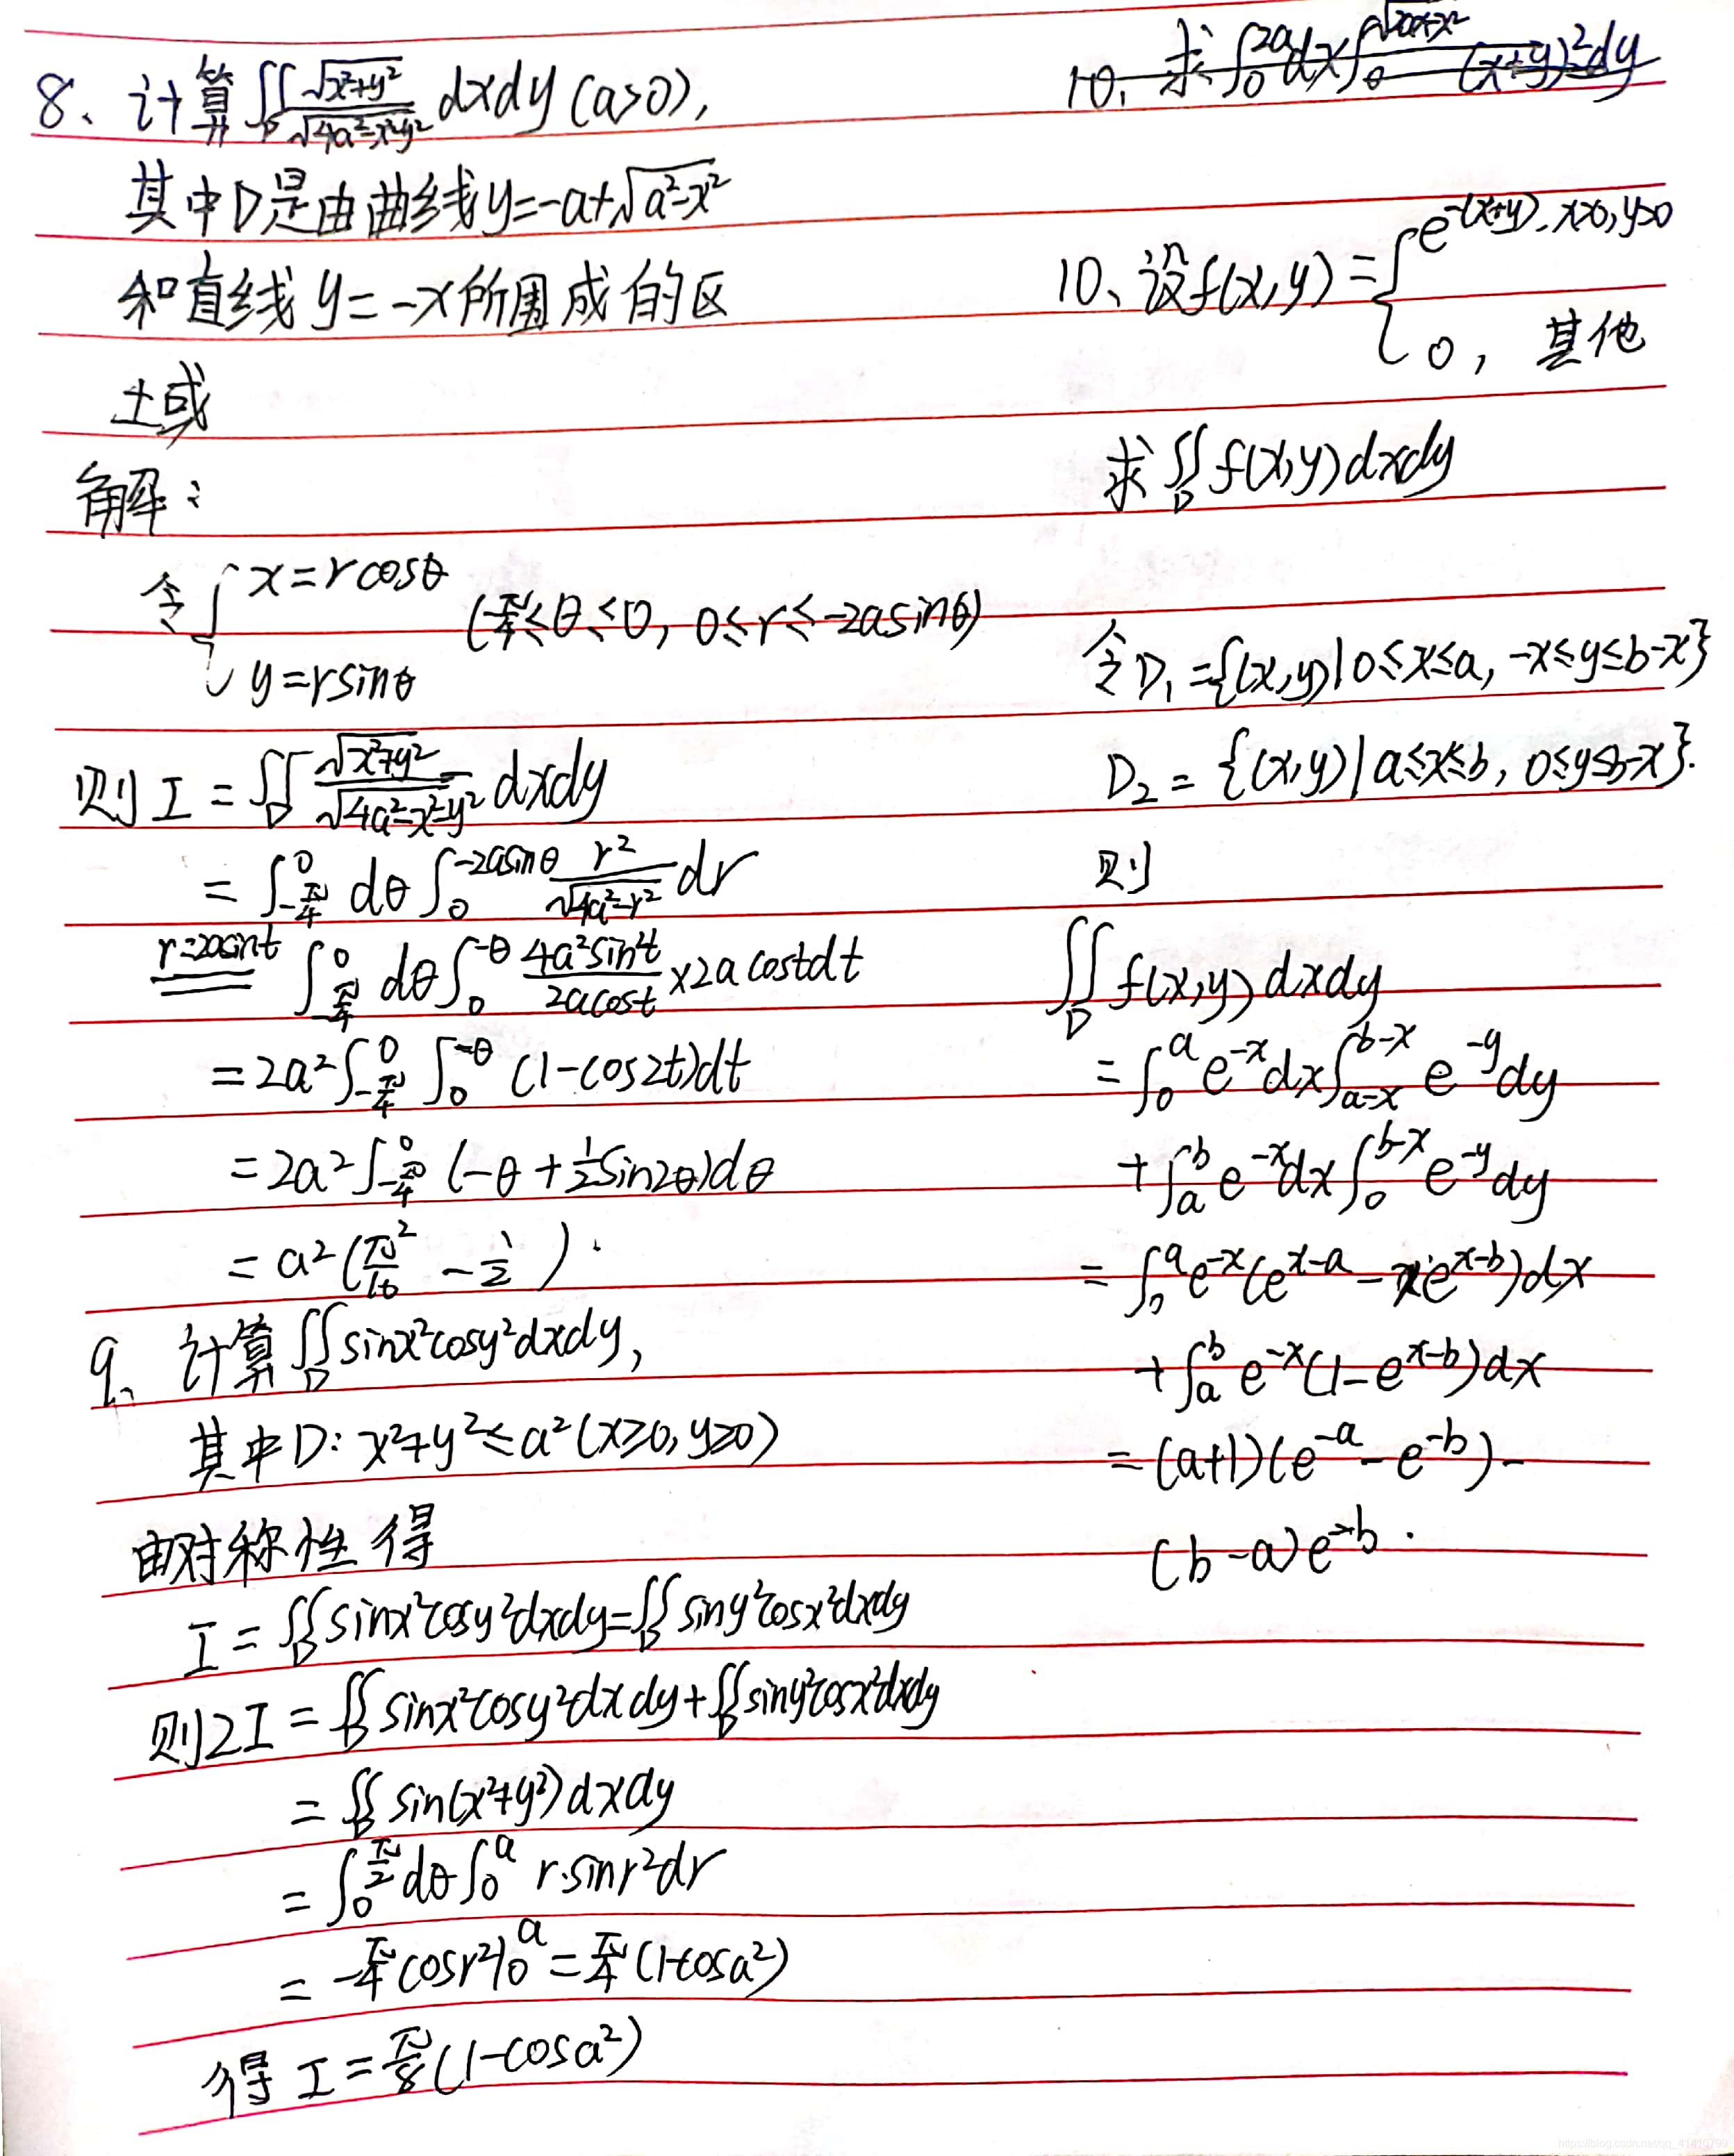 8、计算∬_D √(x²+y²)/√(4a²-x²-y²) dxdy (a>0),
其中D是由曲线y=-a+√(a²-x²)
和直线 y=-x所围成的区
域
解：
令{ x=rcosθ
y=rsinθ
(-π/4≤θ≤0, 0≤r≤-2asinθ)
则 I = ∬_D √(x²+y²)/√(4a²-x²-y²) dxdy
= ∫_{-π/4}^0 dθ ∫_0^{-2asinθ} r²/√(4a²-r²) dr
r=2asint ∫_{-π/4}^0 dθ ∫_0^{-θ} 4a²sin²t/2acost ×2acostdt
= 2a² ∫_{-π/4}^0 ∫_0^{-θ} (1-cos2t)dt
= 2a² ∫_{-π/4}^0 (-θ+½sin2θ)dθ
= a²(π²/16 - 1/2).
9、计算∬_D sinx²cosy²dxdy,
其中D: x²+y²≤a²(x≥0,y≥0)
由对称性得
I = ∬_D sinx²cosy²dxdy=∬_D siny²cosx²dxdy
则2I = ∬_D sinx²cosy²dxdy+∬_D siny²cosx²dxdy
= ∬_D sin(x²+y²)dxdy
= ∫_0^{π/2} dθ ∫_0^a r·sinr²dr
= -π/4 cosr²|_0^a = π/4 (1-cosa²)
得 I = π/8 (1-cosa²)
10、求∫_0^{2a}dx∫_0^{√(2ax-x²)} (x+y)²dy
10、设f(x,y)={ e^{-(x+y)}, x>0,y>0
0, 其他
求∬_D f(x,y)dxdy
令D₁={(x,y)|0≤x≤a, -x≤y≤b-x}
D₂={(x,y)|a≤x≤b, 0≤y≤b-x}.
则
∬_D f(x,y)dxdy
= ∫_0^a e^{-x}dx∫_{a-x}^{b-x} e^{-y}dy
+ ∫_a^b e^{-x}dx∫_0^{b-x} e^{-y}dy
= ∫_0^a e^{-x}(e^{x-a}-e^{x-b})dx
+ ∫_a^b e^{-x}(1-e^{x-b})dx
= (a+1)(e^{-a}-e^{-b})-
(b-a)e^{-b}.